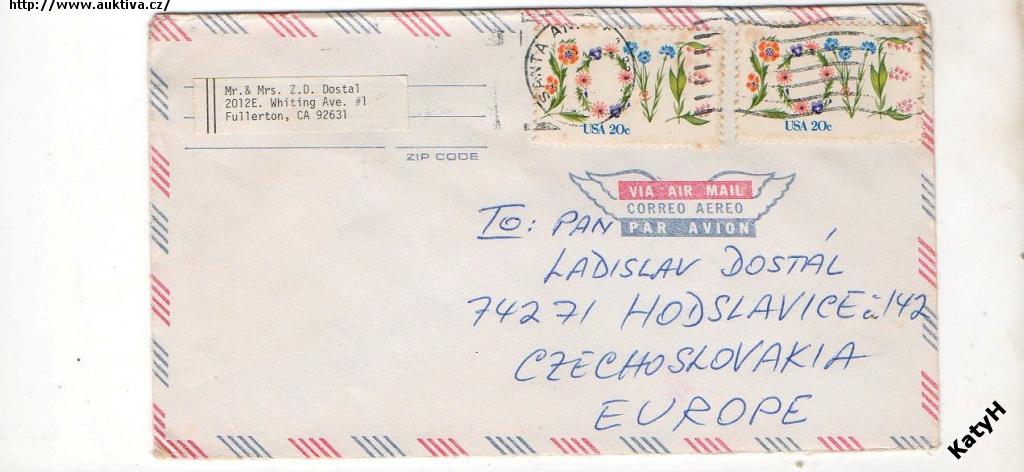 http://www.auktiva.cz/
Mr.& Mrs. Z.D. Dostal
2012E. Whiting Ave. #1
Fullerton, CA 92631
ZIP CODE
SANTA AN
USA 20c
USA 20c
VIA AIR MAIL
CORREO AEREO
PAR AVION
TO: PAN
LADISLAV DOSTÁL
74271 HODSLAVICE č 142
CZECHOSLOVAKIA
EUROPE
KatyH